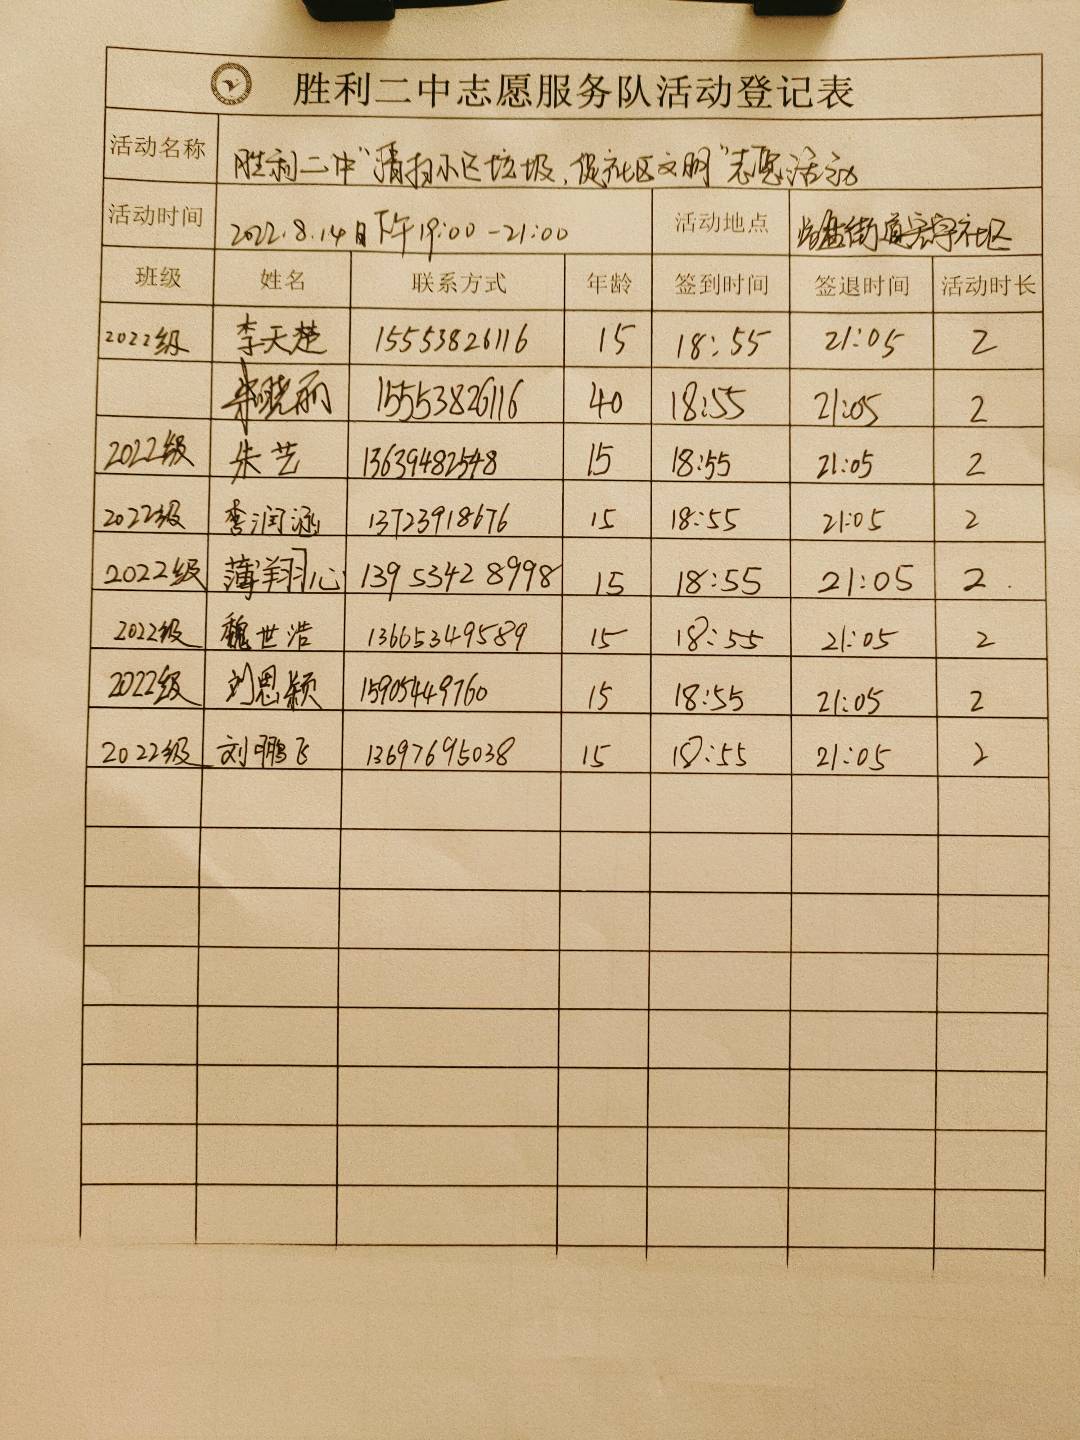 胜利二中志愿服务队活动登记表
活动名称 胜利二中“清扫小区垃圾、促社区文明”志愿活动
活动时间 2022.8.14日下午19:00-21:00 活动地点 街道宏宇社区
班级 姓名 联系方式 年龄 签到时间 签退时间 活动时长
2022级 李天楚 15553826116 15 18:55 21:05 2
晓丽 15553826116 40 18:55 21:05 2
2022级 朱艺 13639482548 15 18:55 21:05 2
2022级 李润涵 13723918676 15 18:55 21:05 2
2022级 薄翔心 13953428998 15 18:55 21:05 2
2022级 魏世浩 13665349589 15 18:55 21:05 2
2022级 刘思颖 15905449760 15 18:55 21:05 2
2022级 刘鹏飞 13697695038 15 18:55 21:05 2